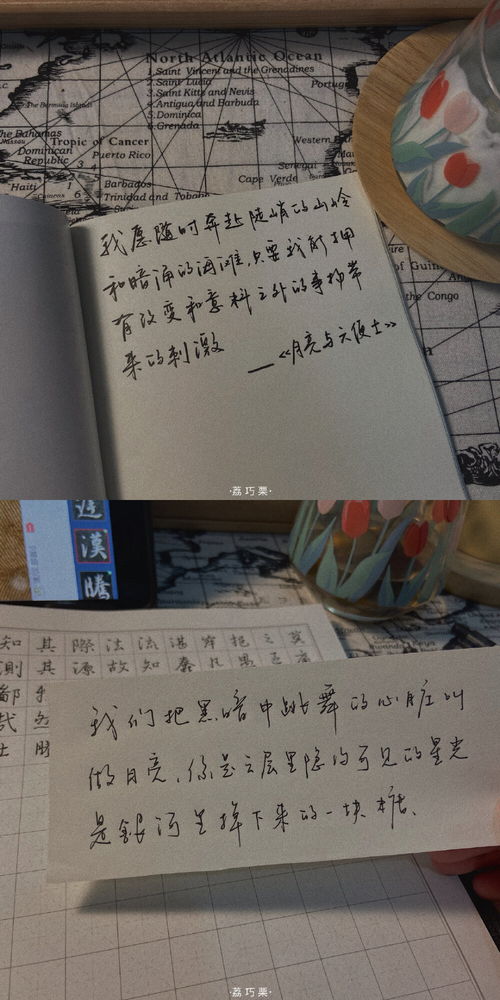 North Atlantic Ocean
1.Saint Vincent and the Grenadines
2.Saint Lucia
3.Saint Kitts and Nevis
4.Antigua and Barbuda
5.Dominica
6.Grenada
Portug
The Bermuda Islands
The Bahamas
Tropic of Cancer
Dominican
Republic
Puerto Rico
Western
Senegal
Haiti
Barbados
Cape Verde
Trinidad and Tobago
the Congo
我愿随时奔赴陡峭的山岭
和暗涌的海滩,只要我能拥
有改变和意料之外的事物带
来的刺激
——《月亮与六便士》
·荔巧栗·
漢
騰
知其際法流湛
則其源故知
我们把黑暗中跳舞的心脏叫
做月亮,你是云层里隐约可见的星光
是銀河里掉下来的一块糖、
·荔巧栗·